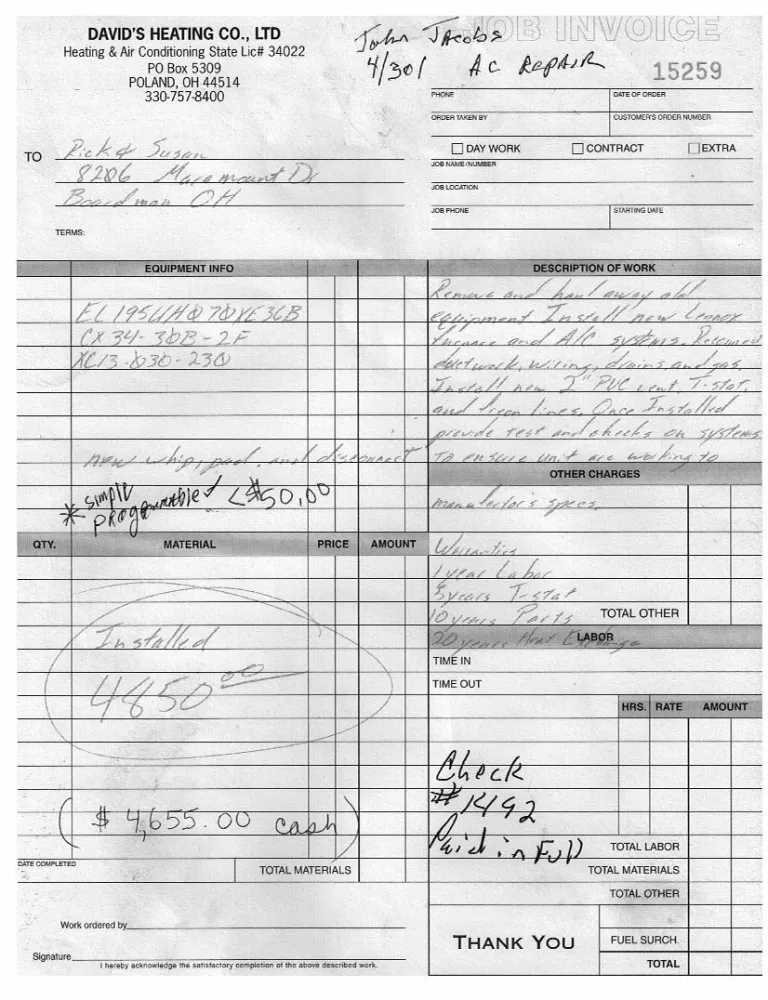 DAVID'S HEATING CO., LTD
Heating & Air Conditioning State Lic# 34022
PO Box 5309
POLAND, OH 44514
330-757-8400
JOB INVOICE
John Jacobs
4/30/
AC Repair
15259
PHONE
DATE OF ORDER
ORDER TAKEN BY
CUSTOMER'S ORDER NUMBER
DAY WORK
CONTRACT
EXTRA
JOB NAME/NUMBER
JOB LOCATION
JOB PHONE
STARTING DATE
TO
Rick & Susan
8206 Maramount Dr
Boardman OH
TERMS:
EQUIPMENT INFO
EL195UH070XE36B
CX34-30B-2F
XC13-030-230
new whip, pad, and disconnect
* simple programmable
<$50.00
DESCRIPTION OF WORK
Remove and haul away old
equipment Install new Lennox
furnace and A/C systems. Reconnect
duct work, wiring, drains, and gas.
Install new 2" PVC vent, T-stat,
and freon lines. Once Installed
provide test and checks on systems
To ensure unit are working to
OTHER CHARGES
manufactor's specs.
Warranties
1 year Labor
5 years T-stat
10 years Parts
TOTAL OTHER
20 years Heat Exchange
LABOR
TIME IN
TIME OUT
HRS.
RATE
AMOUNT
QTY.
MATERIAL
PRICE
AMOUNT
Installed
4850 00
($ 4,655.00 cash)
Check
#1492
Paid in Full
DATE COMPLETED
TOTAL MATERIALS
TOTAL LABOR
TOTAL MATERIALS
TOTAL OTHER
Work ordered by
Signature
I hereby acknowledge the satisfactory completion of the above described work.
THANK YOU
FUEL SURCH.
TOTAL